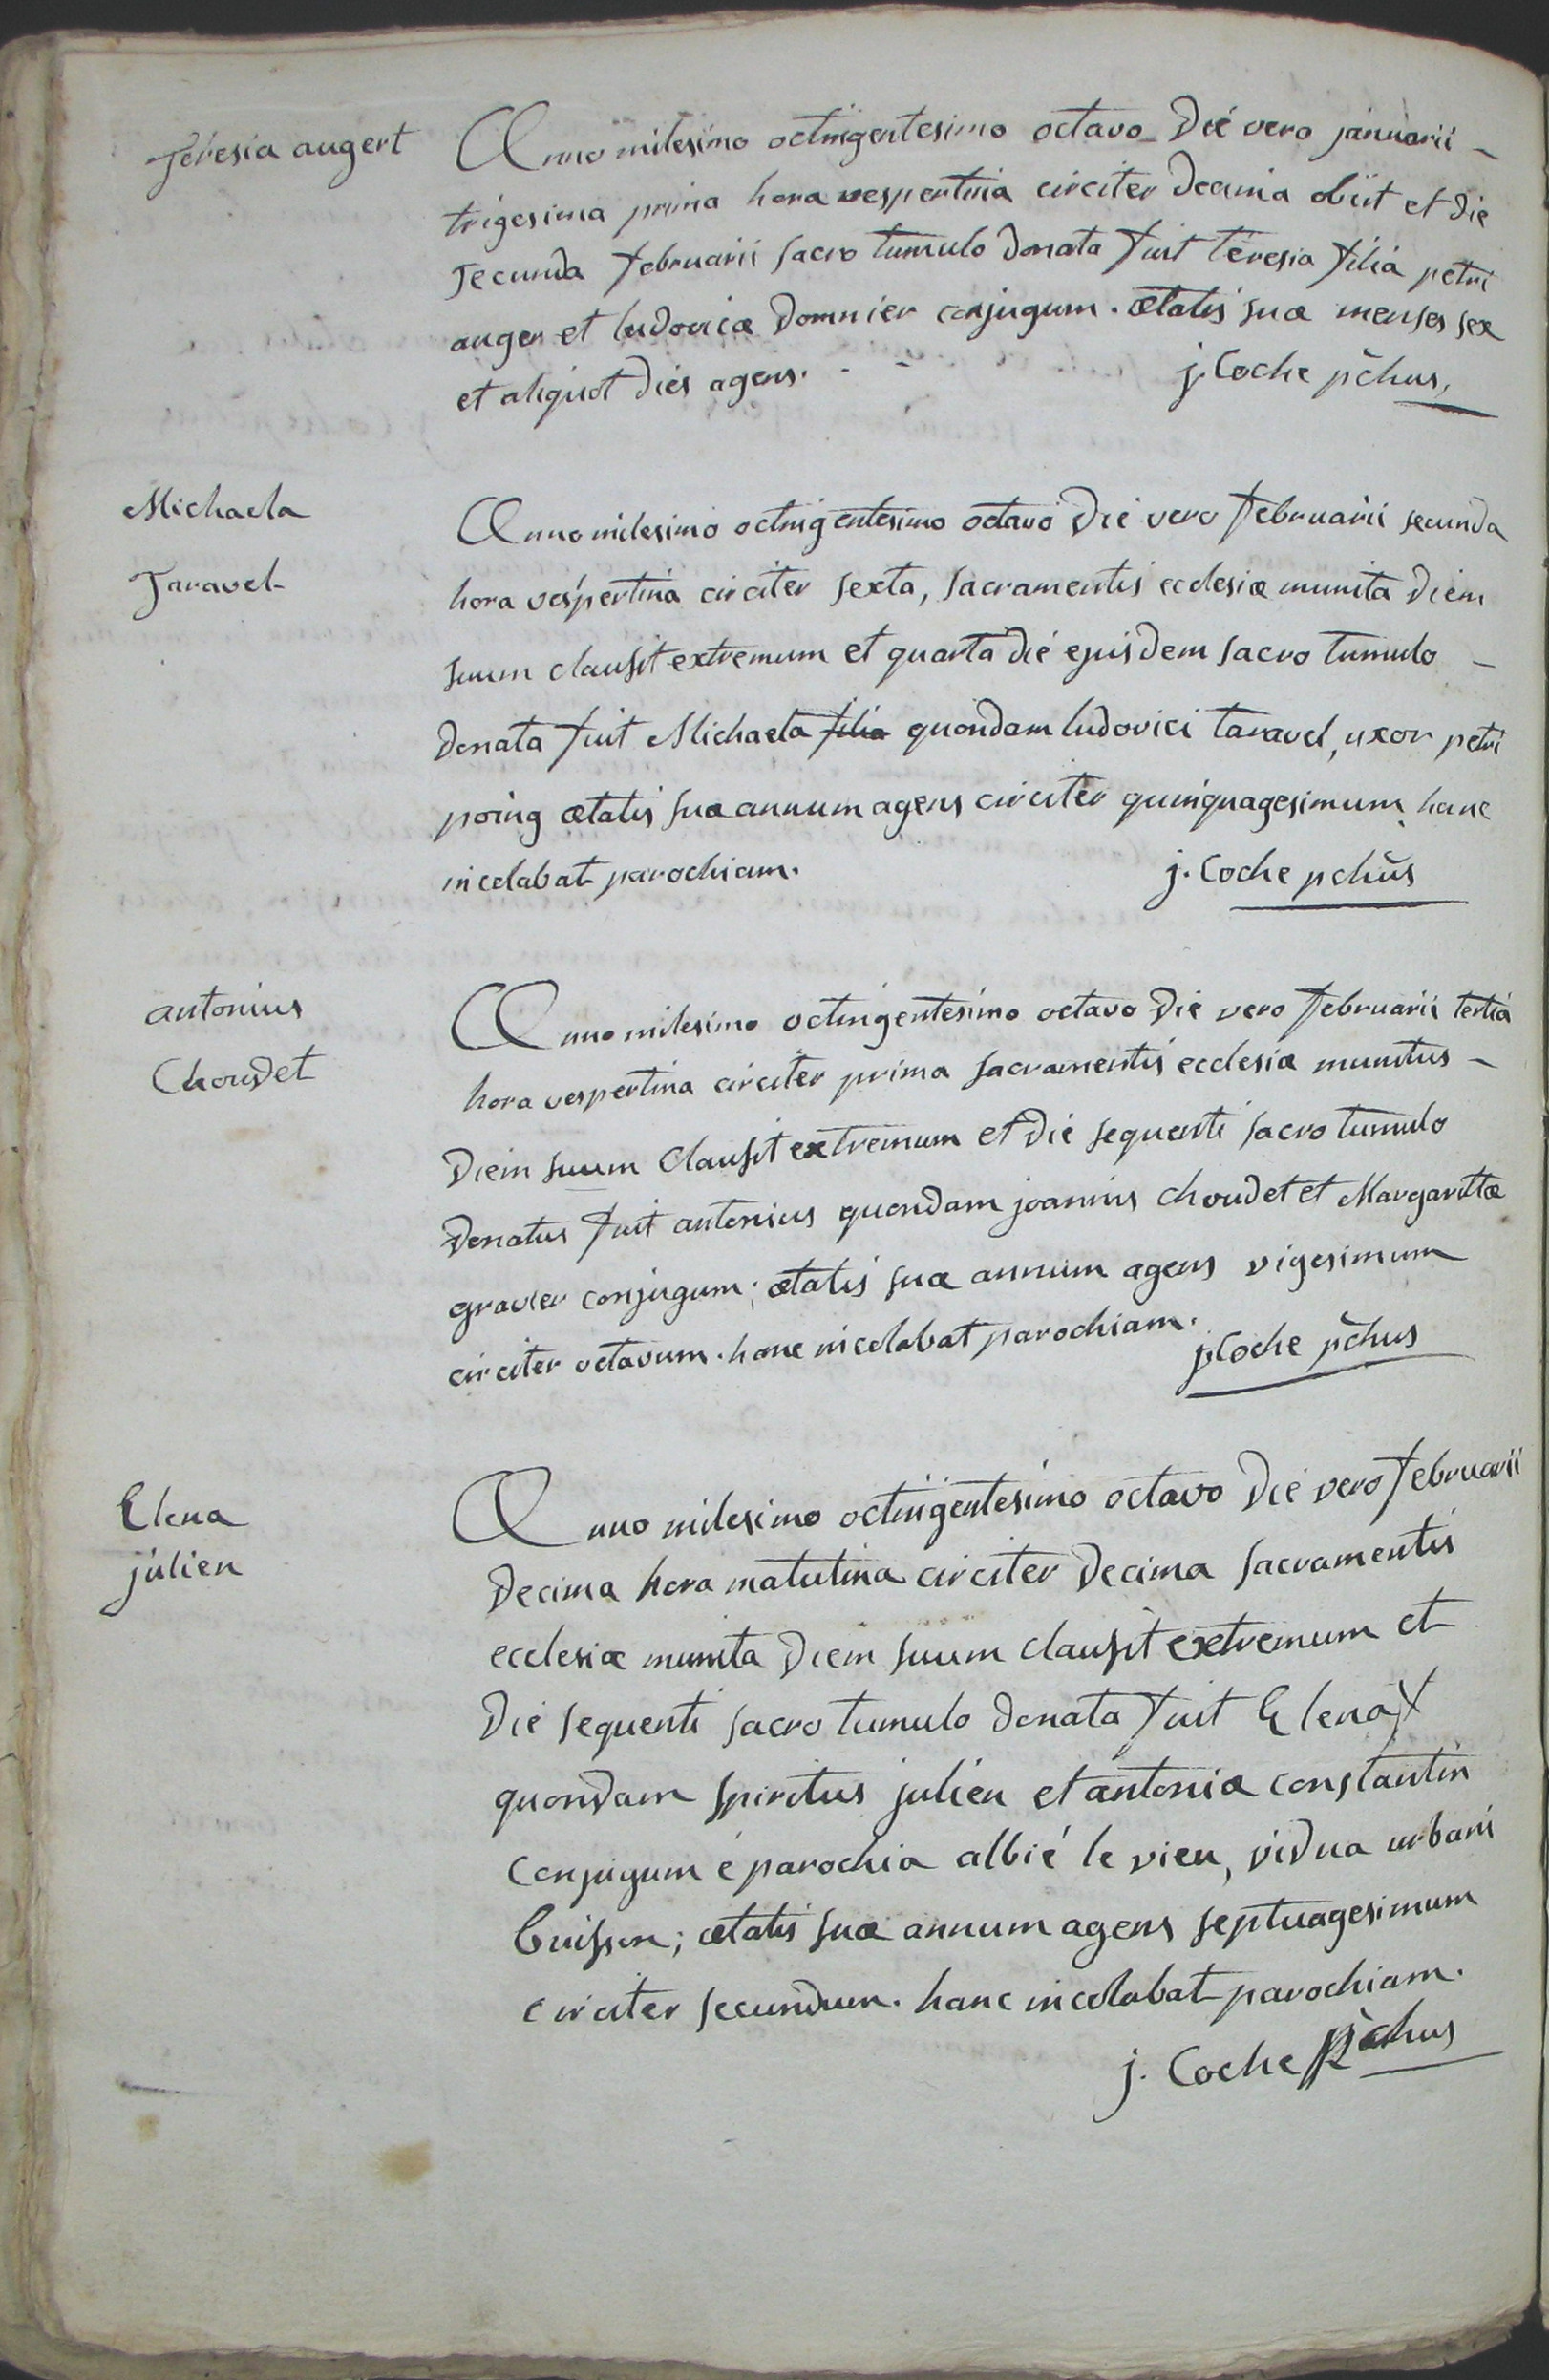 Teresia augert
Anno milesimo octingentesimo octavo Die vero januarii -
trigesima prima hora vespertina circiter decima obiit et die
secunda februarii sacro tumulo donata fuit teresia filia petri
auger et ludovicæ Domnier conjugum. ætatis suæ menses sex
et aliquot dies agens. - -
j. Coche pchus,
Michaela
Taravel
Anno milesimo octingentesimo octavo Die vero februarii secunda
hora vespertina circiter sexta, sacramentis ecclesiæ munita Diem
suum clausit extremum et quarta die ejusdem sacro tumulo -
Donata fuit Michaela filia quondam ludovici taravel, uxor petri
poing ætatis suæ annum agens circiter quinquagesimum, hanc
incolabat parochiam.
j. Coche pchus
antonius
Choudet
Anno milesimo octingentesimo octavo Die vero februarii tertia
hora vespertina circiter prima sacramentis ecclesiæ munitus -
Diem suum Clausit extremum et die sequenti sacro tumulo
Donatus fuit antonius quondam joannis choudet et Margaritæ
gravier conjugum; ætatis suæ annum agens vigesimum
circiter octavum. hanc incolabat parochiam.
j Coche pchus
Elena
julien
Anno milesimo octingentesimo octavo Die vero februarii
Decima hora matutina circiter Decima sacramentis
ecclesiæ munita Diem suum clausit extremum et
Die sequenti sacro tumulo donata fuit Elena
quondam spiritus julien et antoniæ constantin
Conjugum é parochia albié le vieu, vidua urbani
buisson; ætatis suæ annum agens septuagesimum
circiter secundum. hanc incolabat parochiam.
j. Coche pchus